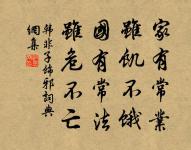 家有常業
雖飢不餓
國有常法
雖危不亡
韩非子饰邪词典
網集